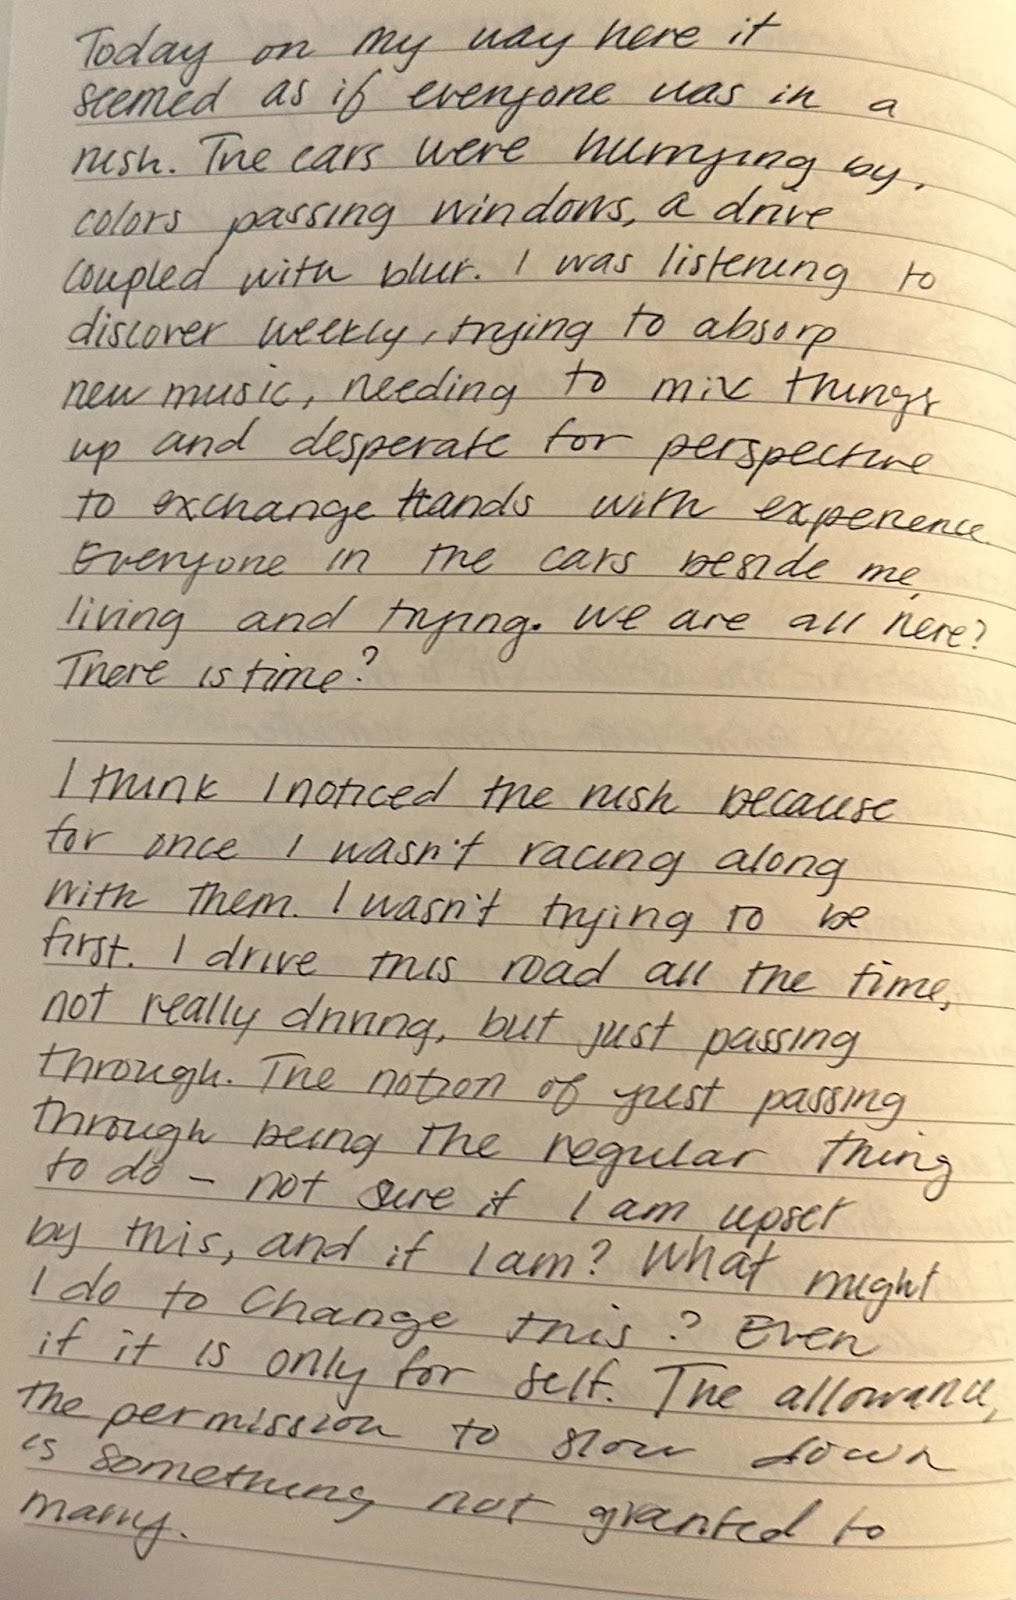 Today on my way here it
seemed as if everyone was in a
rush. The cars were hurrying by,
colors passing windows, a drive
coupled with blur. I was listening to
discover weekly, trying to absorp
new music, needing to mix things
up and desperate for perspective
to exchange Hands with experience.
Everyone in the cars beside me,
living and trying. We are all here?
There is time?
I think I noticed the rush because
for once I wasn't racing along
with them. I wasn't trying to be
first. I drive this road all the time,
not really driving, but just passing
through. The notion of just passing
through being the regular thing
to do - not sure if I am upset
by this, and if I am? What might
I do to change this? Even
if it is only for self. The allowance,
the permission to slow down
is something not granted to
many.